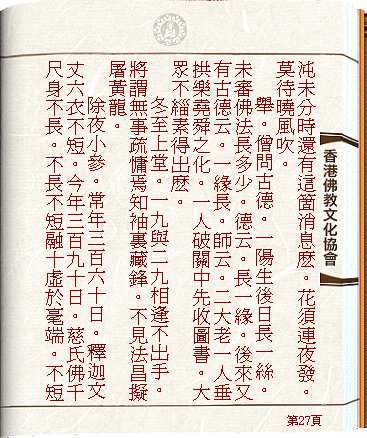 沌未分時還有這箇消息麼。花須連夜發。
莫待曉風吹。
舉。僧問古德。一陽生後日長一絲。
未審佛法長多少。德云。長一緣。後來又
有古德云。一緣長。師云。二大老一人垂
拱樂堯舜之化。一人破關中先收圖書。大
眾不緇素得出麼。
冬至上堂。一九與二九相逢不出手。
將謂無事疏慵焉知袖裏藏鋒。不見法昌擬
屠黃龍。
除夜小參。常年三百六十日。釋迦文
丈六衣不短。今年三百九十日。慈氏佛千
尺身不長。不長不短融十虛於毫端。不短
香港佛教文化協會
第27頁